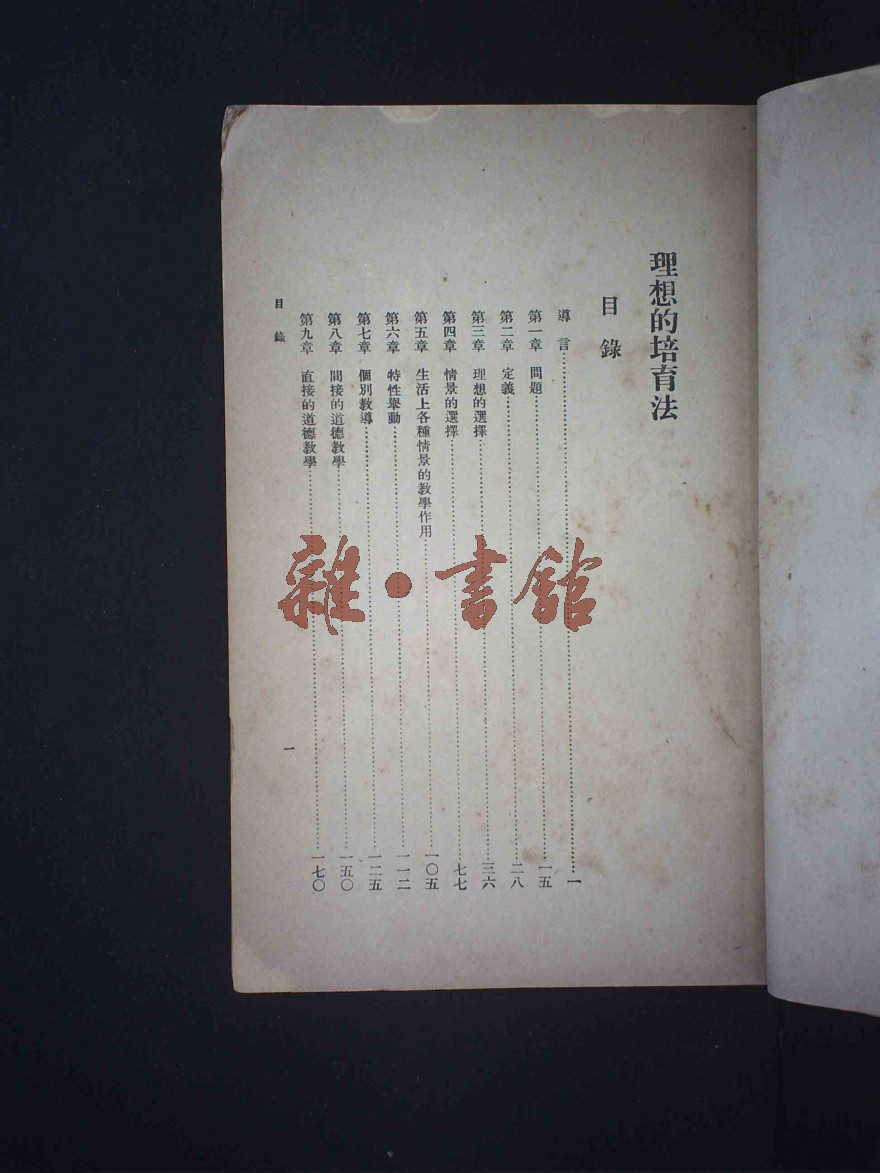 理想的培育法
目錄
導言……一
第一章 問題……一五
第二章 定義……二八
第三章 理想的選擇……三六
第四章 情景的選擇……七七
第五章 生活上各種情景的教學作用……一〇五
第六章 特性舉動……一一二
第七章 個別教導……一二五
第八章 間接的道德教學……一五〇
第九章 直接的道德教學……一七〇
目錄
一
雜·書館